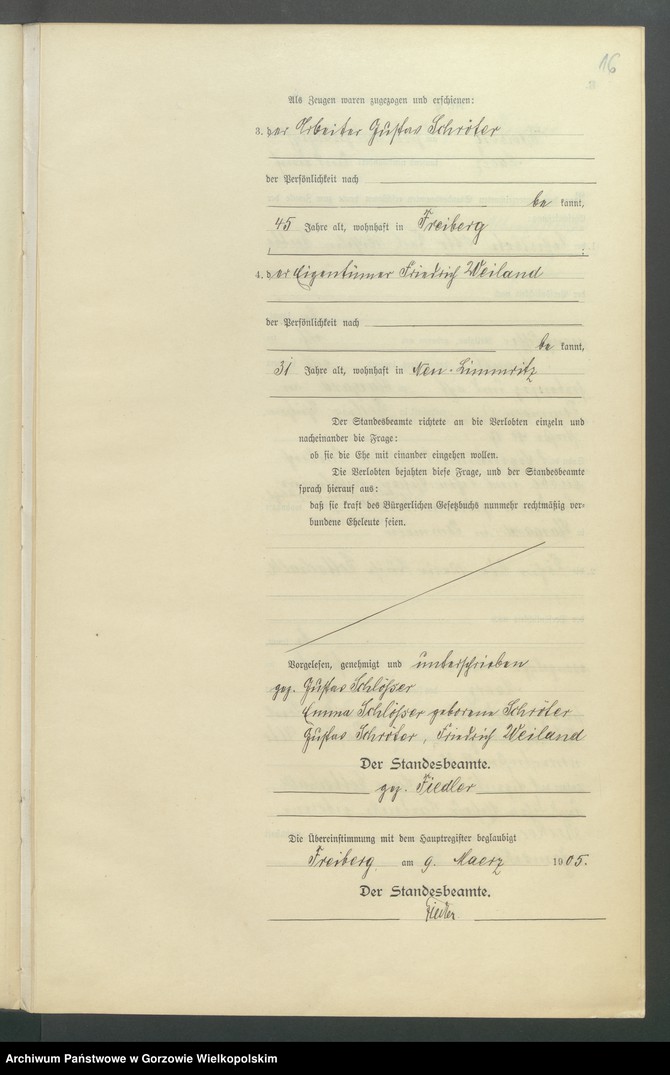 16
Als Zeugen waren zugezogen und erschienen:
3. der Arbeiter Gustav Schröter
der Persönlichkeit nach
be kannt,
45 Jahre alt, wohnhaft in Freiberg
;
4. der Eigentümer Friedrich Weiland
der Persönlichkeit nach
be kannt,
31 Jahre alt, wohnhaft in Neu-Limmritz
Der Standesbeamte richtete an die Verlobten einzeln und
nacheinander die Frage:
ob sie die Ehe mit einander eingehen wollen.
Die Verlobten bejahten diese Frage, und der Standesbeamte
sprach hierauf aus:
daß sie kraft des Bürgerlichen Gesetzbuchs nunmehr rechtmäßig ver-
bundene Eheleute seien.
Vorgelesen, genehmigt und unterschrieben
gez. Gustav Schlößer
Emma Schlößer geborene Schröter
Gustav Schröter, Friedrich Weiland
Der Standesbeamte.
gez. Fiedler
Die Übereinstimmung mit dem Hauptregister beglaubigt
Freiberg am 9. Maerz 1905.
Der Standesbeamte.
Fiedler.
Archiwum Państwowe w Gorzowie Wielkopolskim